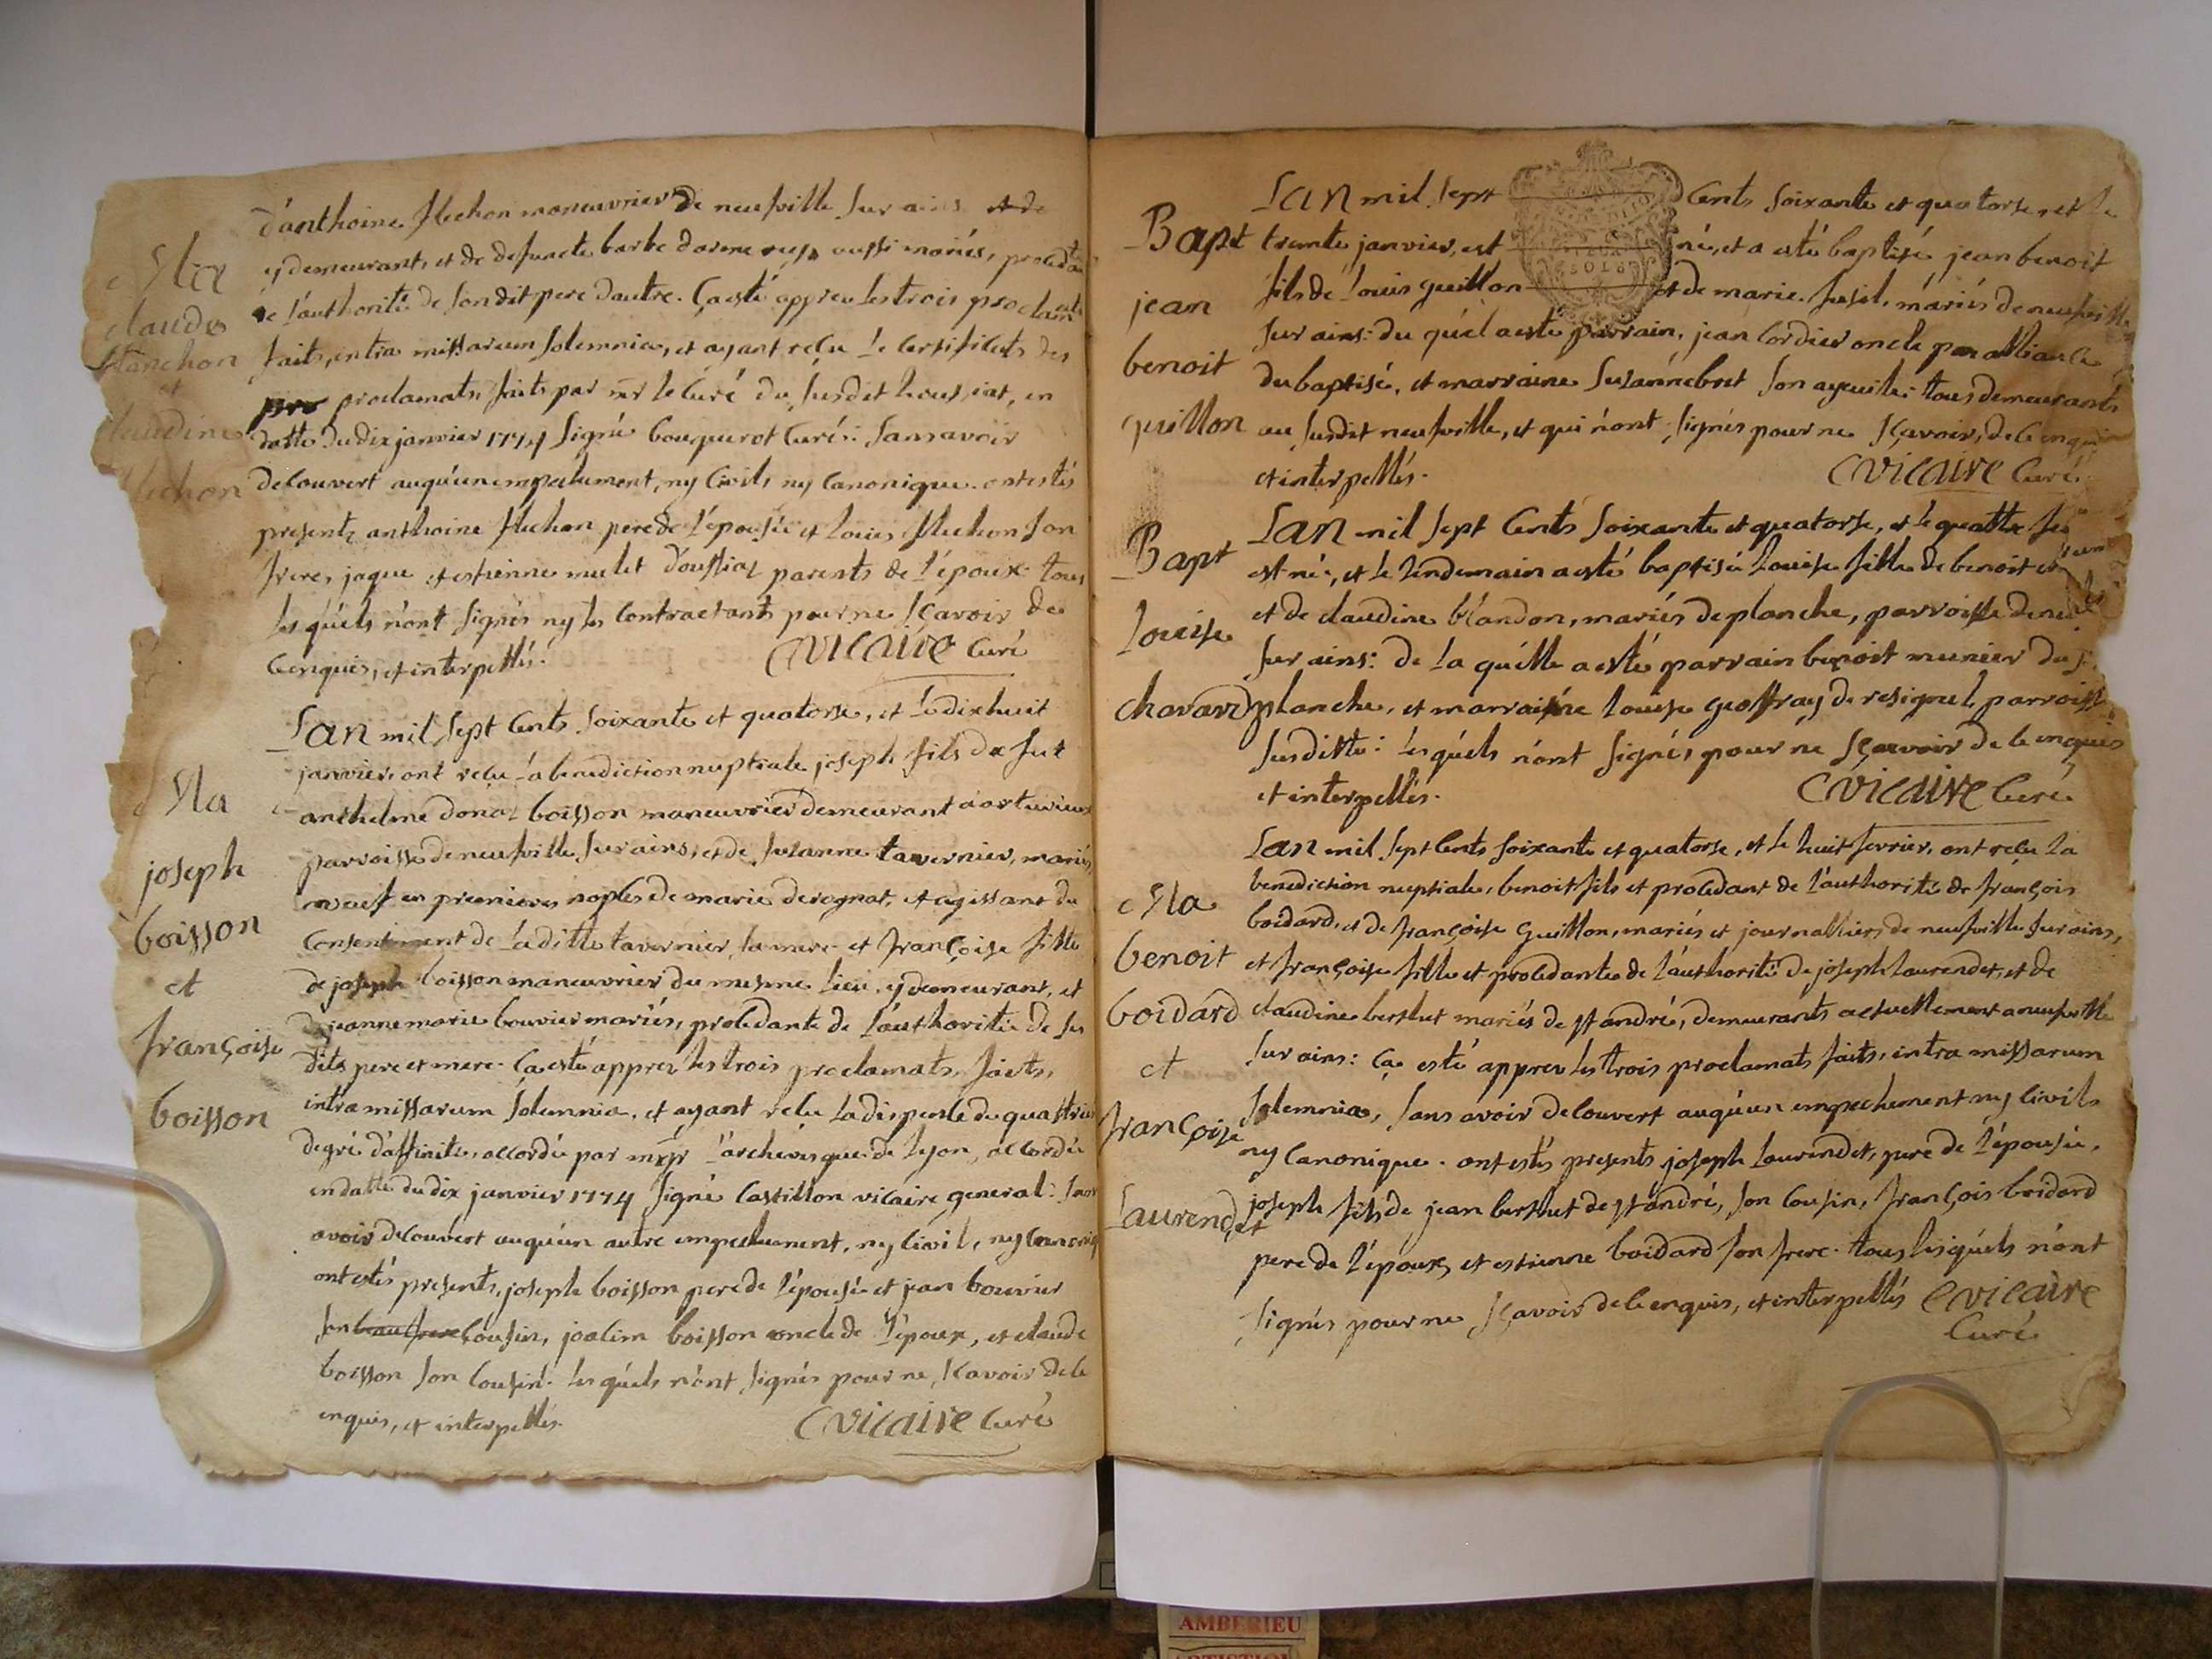 d'anthoine flechon maneuvrier de neufville sur ains et de
y demeurant, et de defuncte barbe dorene aussi mariés, procedante
de l'authorité de sondit pere d'autre. Ça esté apprez les trois proclamats
faits, intra missarum solemnia, et ayant reçu le Certificats des
pro proclamats, faits par mr le Curé du susdit hout iat, en
datte du dix janvier 1774 Signé bouquerot Curé: Sans avoir
deCouvert auqu'un empechement, ny Civils ny Canonique. ont estés
presents anthoine flechon pere de l'épousée et Louis flechon son
frere, jaque et estienne mulet d'oussiaz parents de l'époux tous
lesquéls n'ont signés ny les Contractants pour ne sçavoir de
Ce enquis, et interpellés. Cvicaire Curé
Mar
claude
planchon
et
claudine
flechon
L'an mil sept Cents soixante et quatorse, et le dix huit
janvier, ont reçu la benediction nuptiale joseph fils de fut
anthelme donaz boisson maneuvrier demeurant a arturieux
parroisse de neufville sur ains, et de suzanne tavernier, mariés,
veuf en premieres nopces de marie derognat, et agissant du
Consentiment de laditte tavernier, sa mere et françoise fille
de joseph boisson maneuvrier du mesme lieu, y demeurant, et
de jeanne marie bouvier mariés, procedante de l'authorité de ses
dits pere et mere. Ça esté apprez les trois proclamats, faits,
intra missarum solemnia, et ayant reçu la dispense du quattrieme
degré d'affinité, accordée par mgr l'archevesque de Lyon, accordée
en datte du dix janvier 1774 signé Castillon vicaire general: sans
avoir deCouvert auqu'un autre empechement, ny Civil, ny Canonique
ont estés presents, joseph boisson pere de l'épousée et jean bouvier
son beau frere Cousin, joacim boisson oncle de l'époux, et claude
boisson son Cousin. lesquéls n'ont signés pour ne sçavoir de Ce
enquis, et interpellés. Cvicaire Curé
Ma
joseph
boisson
et
françoise
boisson
L'an mil sept Cents soixante et quatorse, et le
trente janvier, est né, et a esté baptisé jean benoit
fils de Louis guillon et de marie fusil, mariés de neufville
sur ains: du quél a esté parrain, jean Cordier oncle par alliance
du baptisé, et marraine suzanne bret son ayeuile: tous demeurants
au susdit neufville, et qui n'ont signés pour ne sçavoir, de Ce enquis
et interpellés. Cvicaire Curé
Bapt
jean
benoit
guillon
L'an mil sept Cents soixante et quatorse, et le quattre
est né, et le lendemain a esté baptisée Louise fille de benoit
et de claudine blandon, mariés de planche, parroisse de
sur ains: de la quélle a esté parrain benoit munier du
planche, et marraine Louise geoffray de resignel, parroisse
susditte: lesquéls n'ont signés pour ne sçavoir de Ce enquis
et interpellés. Cvicaire Curé
Bapt
Louise
chavard
L'an mil sept Cents soixante et quatorse, et le huit fevrier, ont reçu la
benediction nuptiale, benoit fils et procedant de l'authorité de françois
boidard, et de françoise guillon, mariés et journalliers de neufville sur ains,
et françoise fille et procedante de l'authorité de joseph laurendet, et de
claudine berthet mariés de st andré, demeurants actuellement a neufville
sur ains: Ça esté apprez les trois proclamats faits, intra missarum
solemnia, sans avoir deCouvert auqu'un empechement ny Civils
ny Canonique. ont estés presents joseph laurendet, pere de l'épousée,
joseph fils de jean berthet de st andré, son Cousin, françois boidard
pere de l'époux, et estienne boidard son frere. tous lesquéls n'ont
signés pour ne sçavoir de Ce enquis, et interpellés Cvicaire
Curé
Ma
benoit
boidard
et
françoise
Laurendet
AMBERIEU